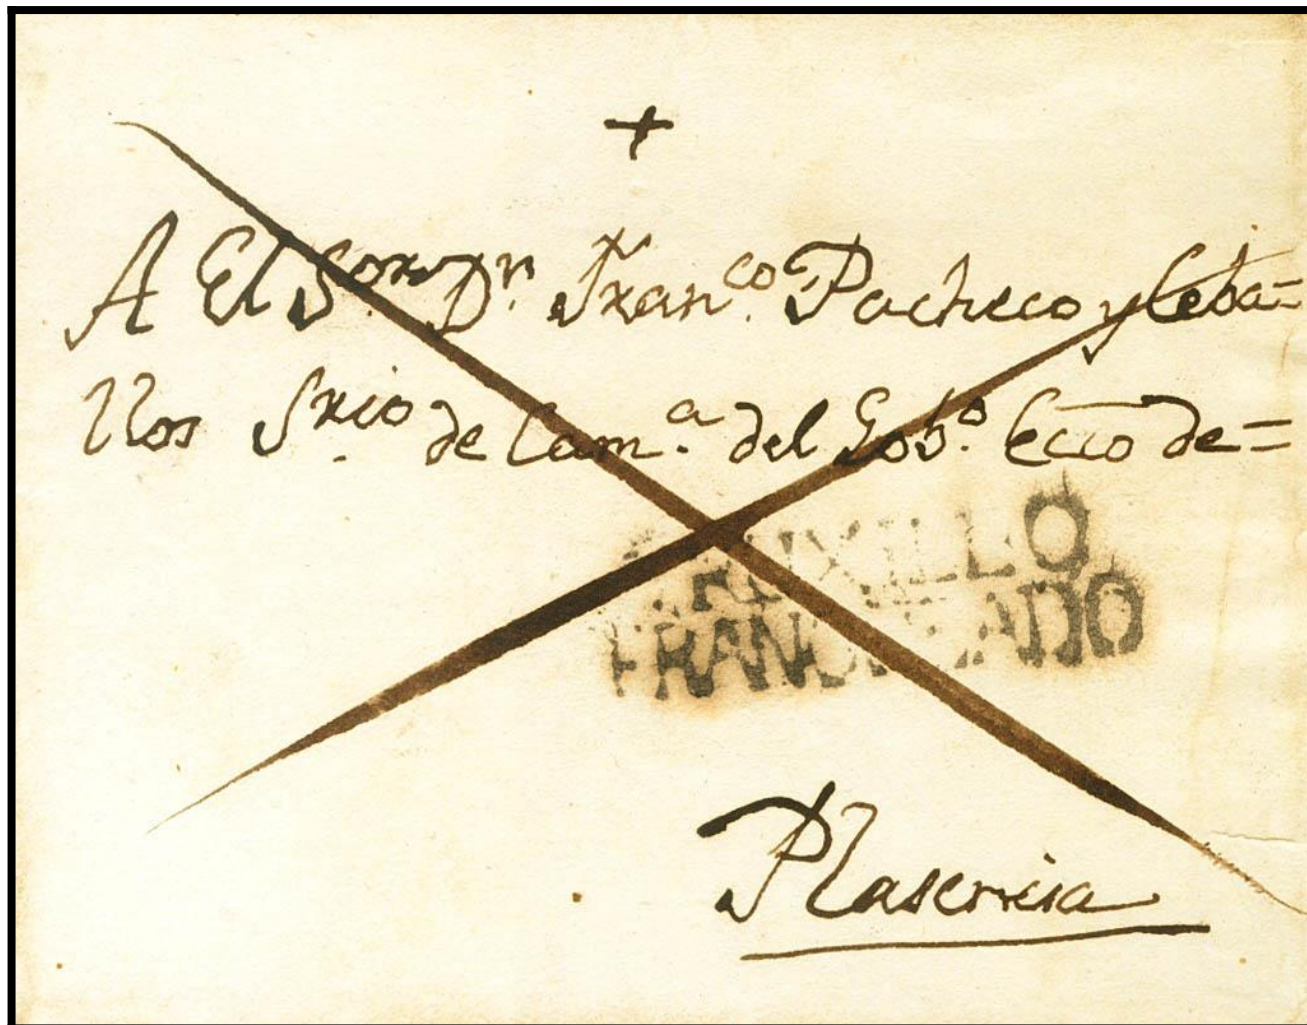 +
A El S.or D.n Fran.co Pacheco y Ceba=
llos S.rio de Cam.a del Gob.o Ecco de=
TRUXILLO
FRANQUEADO
Plasencia